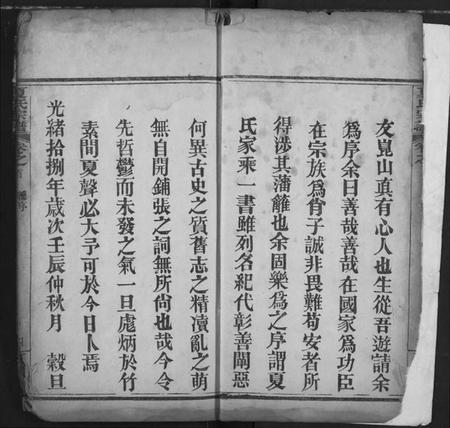 友崑山真有心人也生從吾遊請余
為序余曰善哉善哉在國家為功臣
在宗族為肖子誠非畏難苟安者所
得涉其藩籬也余固樂為之序謂夏
氏家乘一書雖列名紀代彰善闡惡
何異古史之質舊志之精瀆亂之萌
無自開鋪張之詞無所尙也哉今令
先哲鬱而未發之气一旦彪炳於竹
素間夏聲必大予可於今日卜焉
光緒拾捌年歲次壬辰仲秋月　穀旦